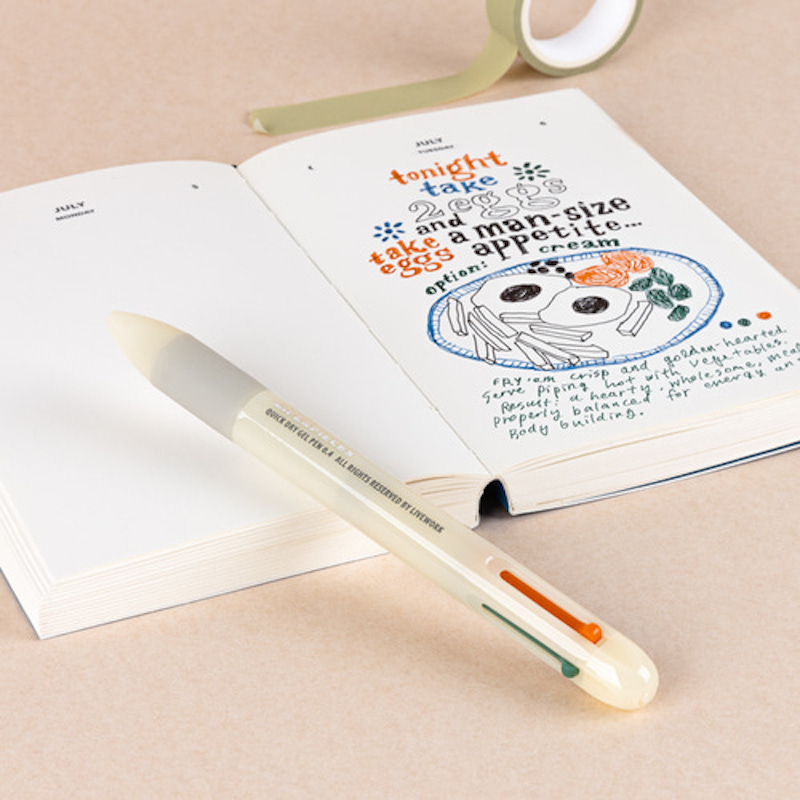 JULY
MONDAY
5
JULY
TUESDAY
6
tonight
take
2 eggs
and a man-size
take appetite...
eggs
option: cream
FRY 'em crisp and golden-hearted.
Serve Piping hot with vegetables.
Result: a hearty, wholesome, meal
properly balanced for energy an
Body building.
QUICK DRY GEL PEN 0.4 ALL RIGHTS RESERVED BY LIVEWORK